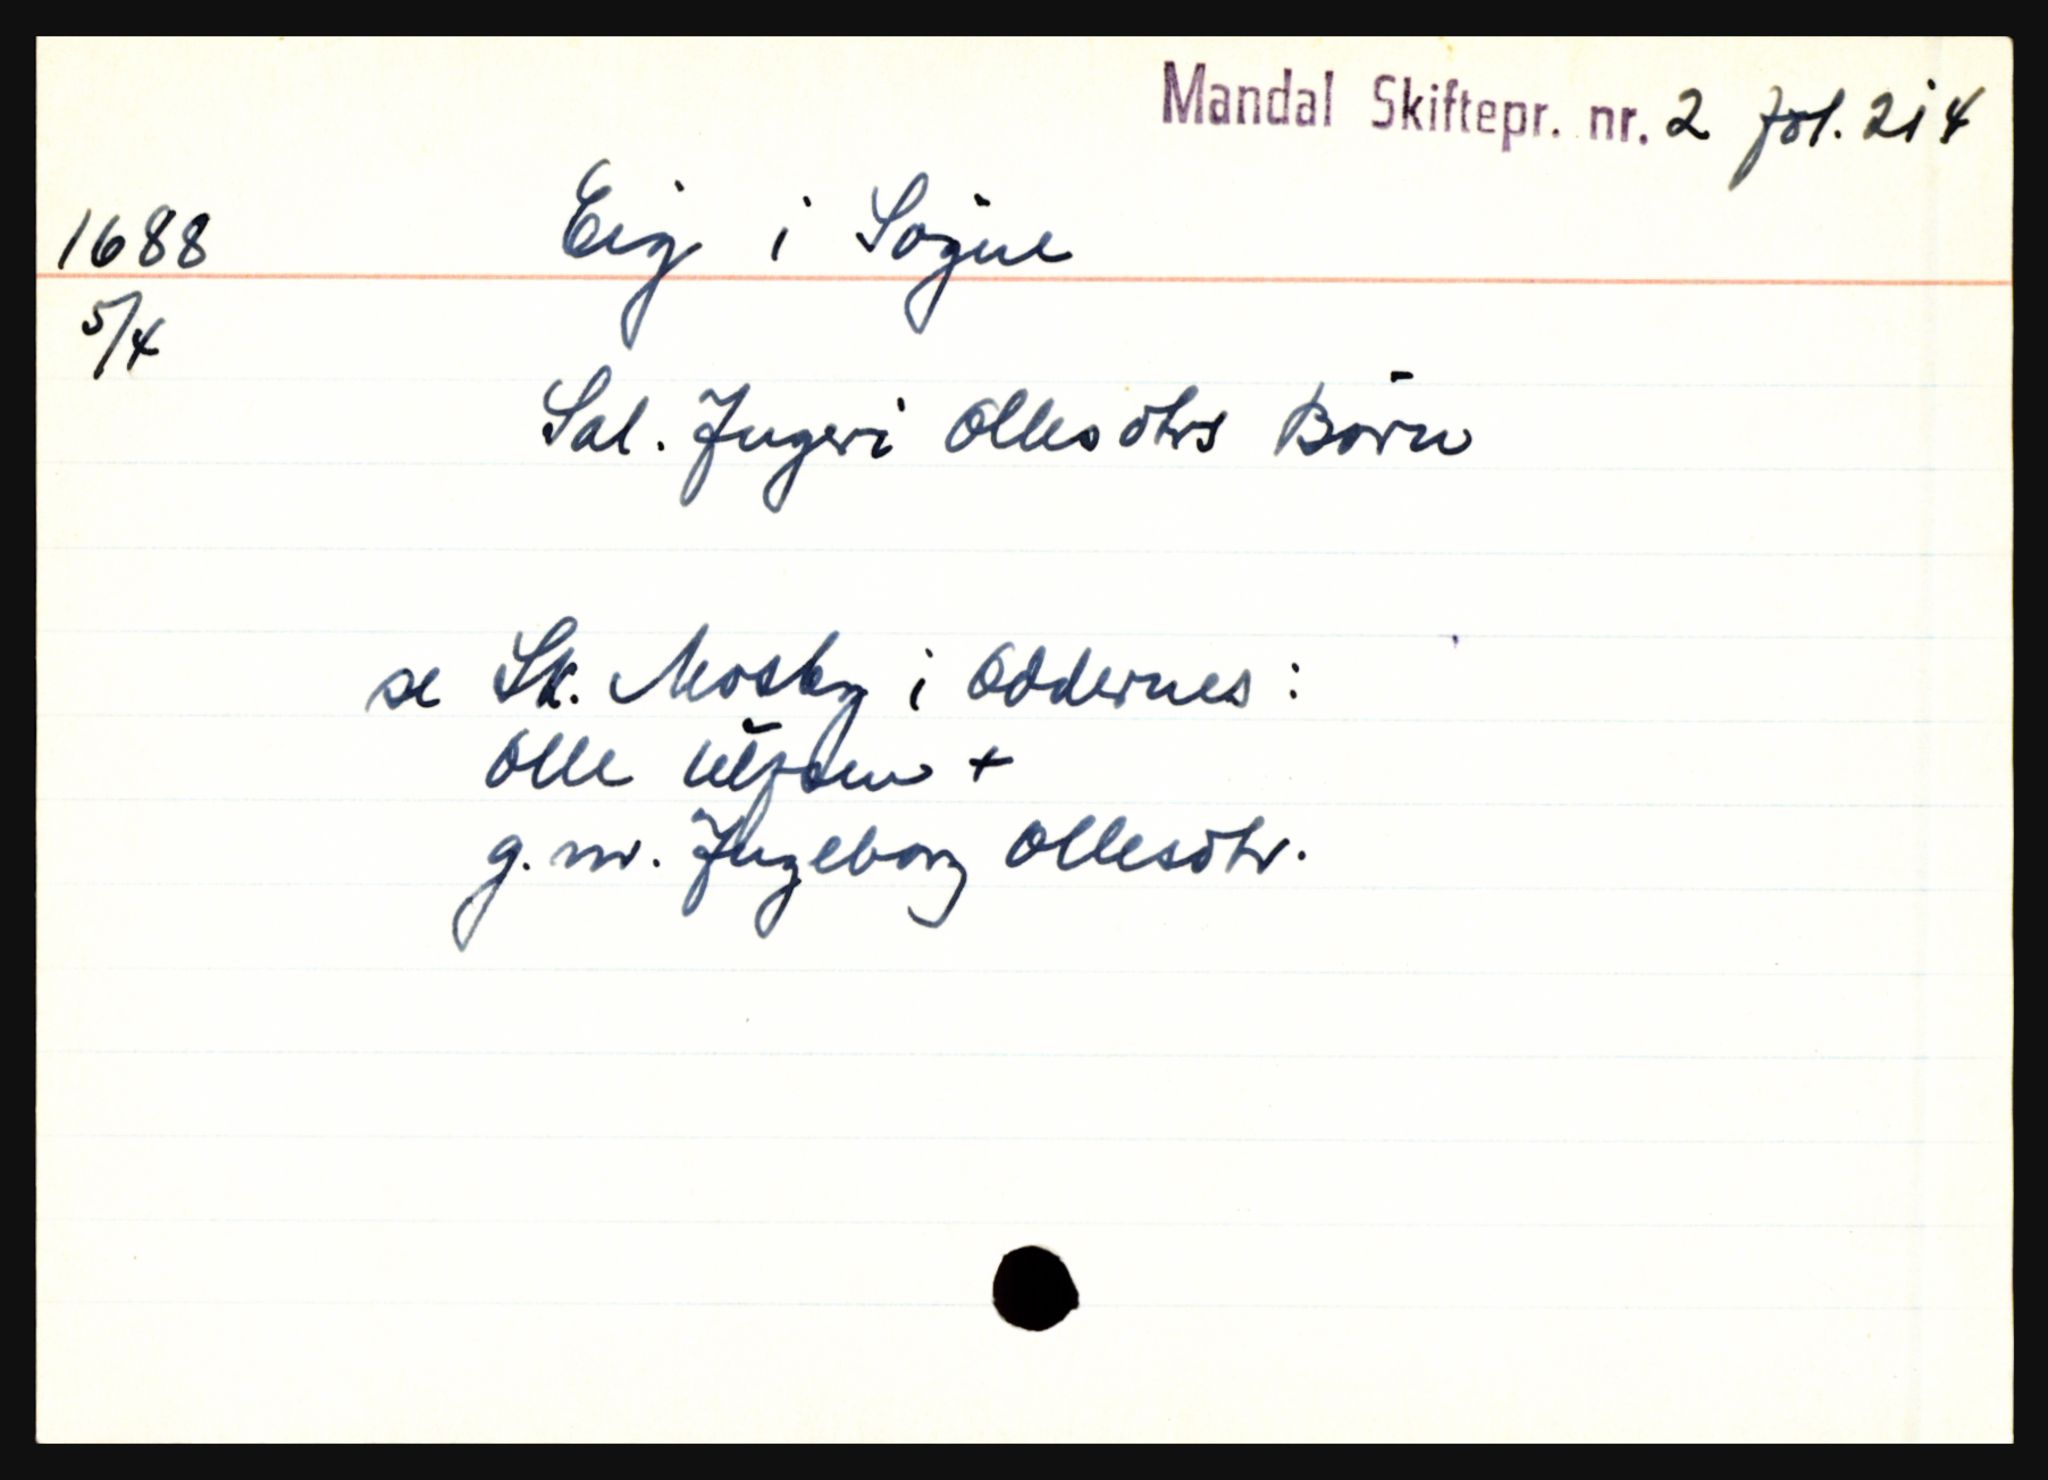 Mandal Skiftepr. nr. 2 fol. 214
1688 Eig i Søgne
5/4
Sal. Ingeri Ollesdtrs Børn
se Sk. Mosby i Oddernes:
Olle Ulfsen +
g. m. Ingeborg Ollesdtr.